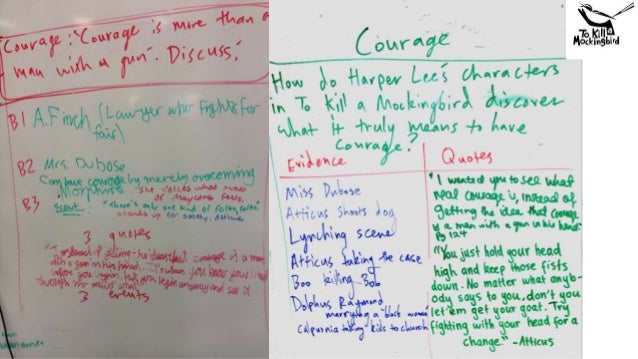 Courage: "Courage is more than a
man with a gun". Discuss.
B1 A.Finch (Lawyer who fights for
fair)
B2 Mrs. Dubose
courage by merely overcoming
Morphine
She voices what many
of Maycomb feels.
B3 Scout. "There's only one kind of folks, folks"
stands up for society, Atticus
3 quotes
"Instead of getting the idea that courage is a man
with a gun in his hand.
before you begin but you begin anyway and see it
through no matter what"
3 events
Courage
How do Harper Lee's characters
in To Kill a Mockingbird discover
what it truly means to have
courage?
Evidence
Miss Dubose
Atticus shoots dog
Lynching scene
Atticus taking the case
Boo killing Bob
Dolphus Raymond
marrying a "black woman"
Calpurnia taking kids to church
Quotes
"I wanted you to see what
real courage is, instead of
getting the idea that courage
is a man with a gun in his hand"
Pg 124
"You just hold your head
high and keep those fists
down. No matter what anyb-
ody says to you, don't you
let 'em get your goat. Try
fighting with your head for a
change." - Atticus
To Kill a
Mockingbird